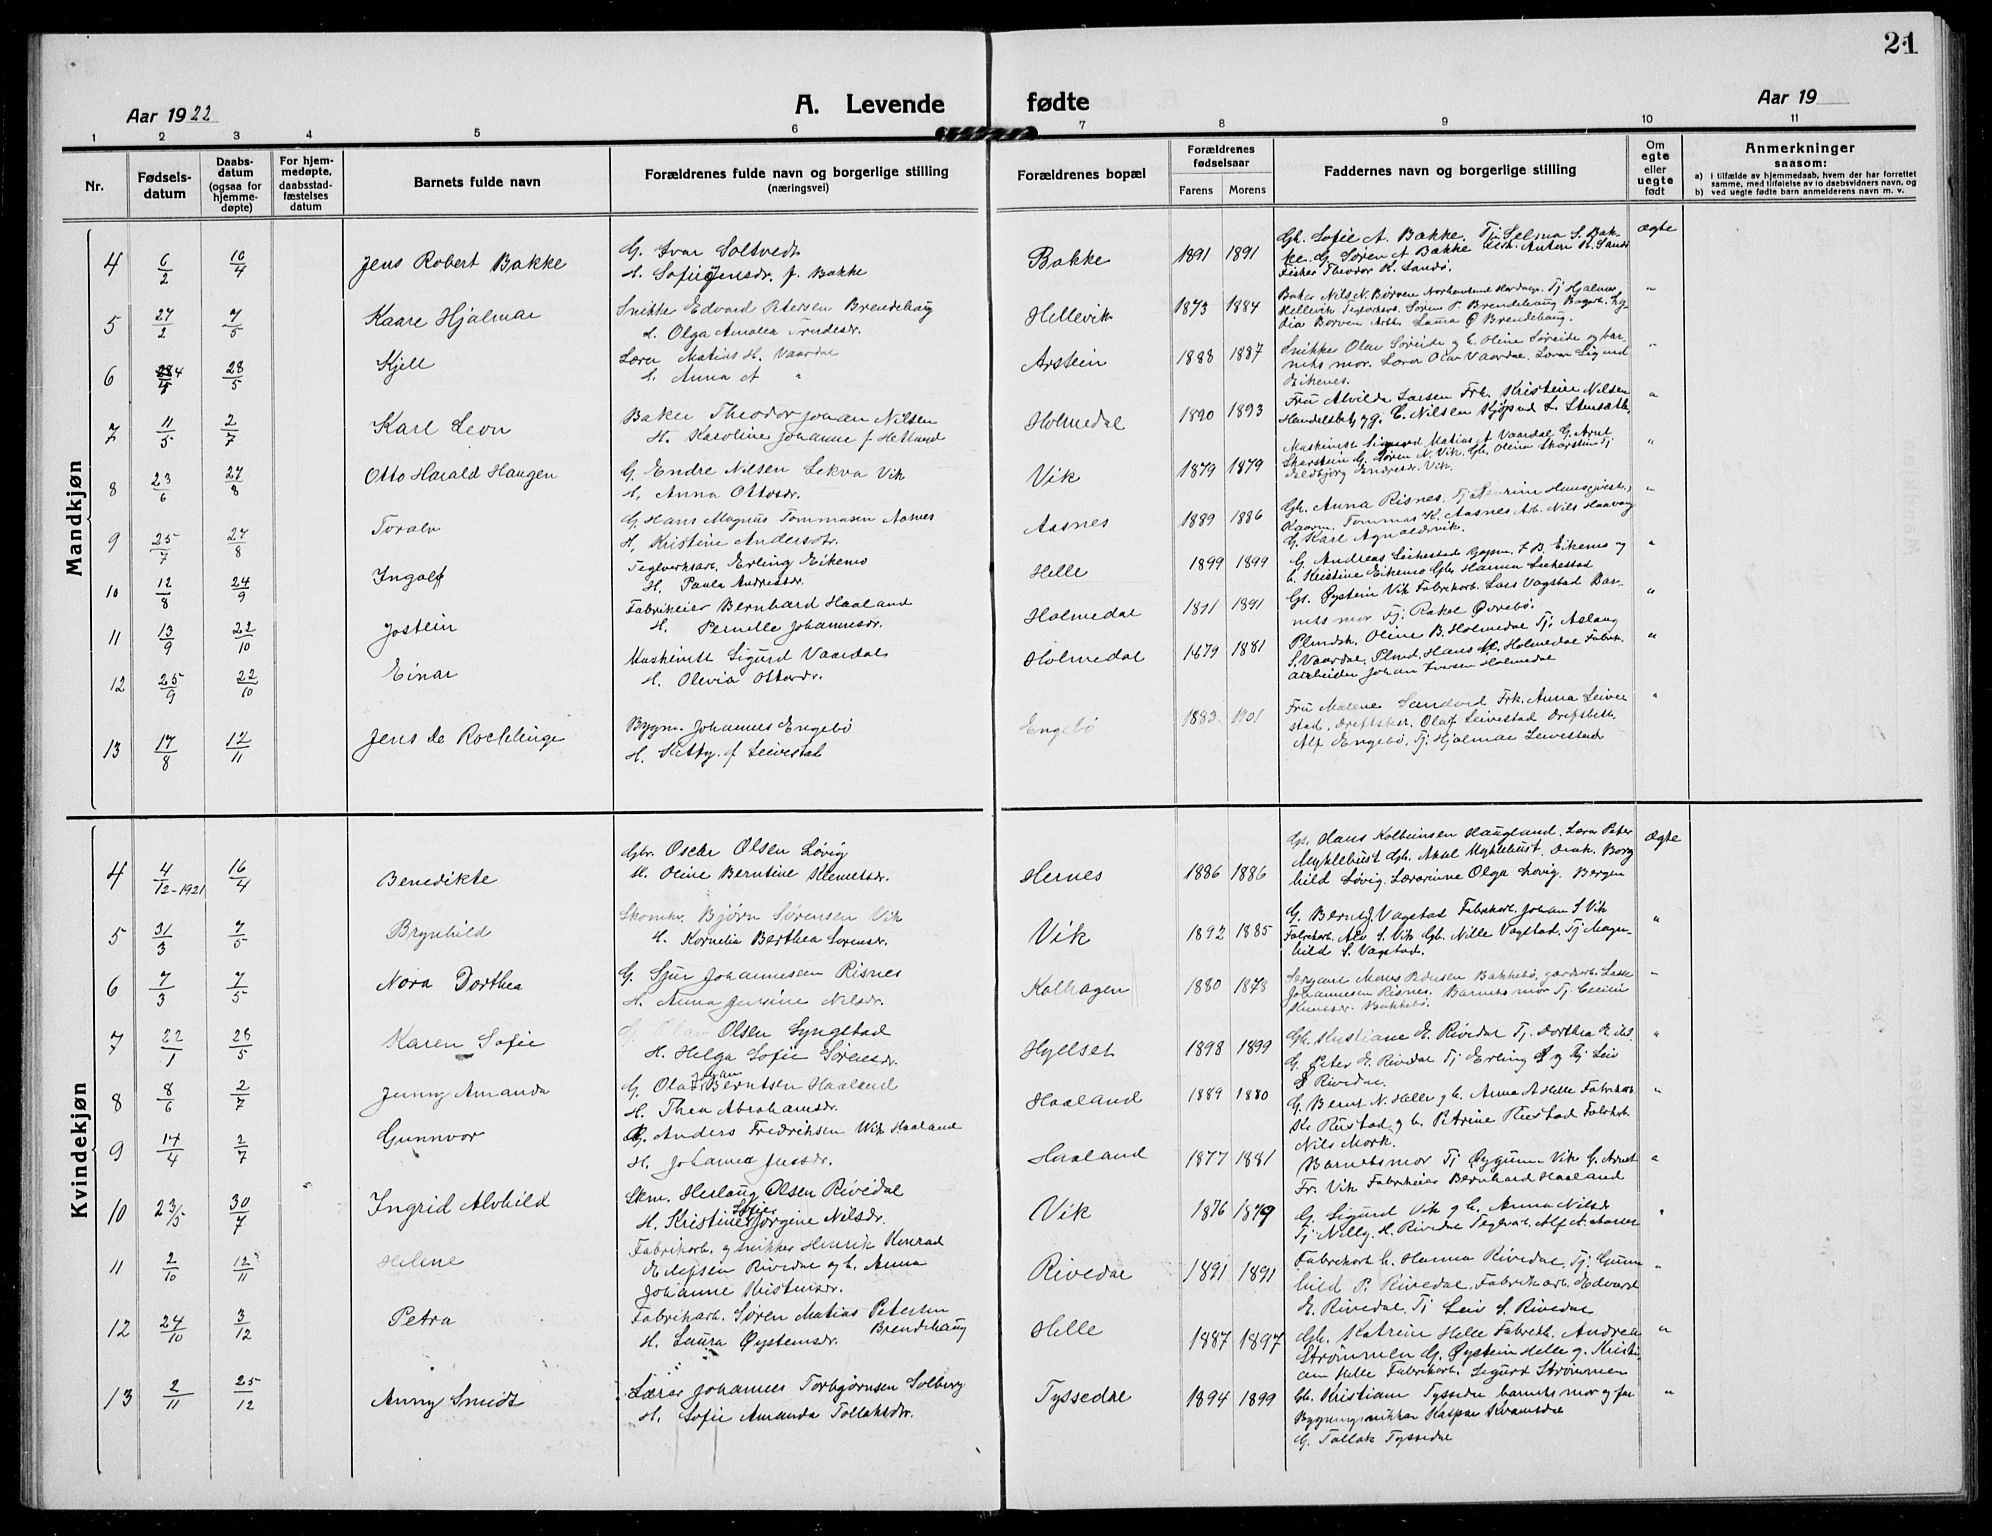 21
Aar 1922
A. Levende fødte
Aar 19
1 2 3 4 5 6 7 8 9 10 11
Nr.
Fødsels-
datum
Daabs-
datum
(ogsaa for
hjemme-
døpte)
For hjem-
medøpte,
daabsstad-
fæstelses
datum
Barnets fulde navn
Forældrenes fulde navn og borgerlige stilling
(næringsvei)
Forældrenes bopæl
Forældrenes
fødselsaar
Farens Morens
Faddernes navn og borgerlige stilling
Om
egte
eller
uegte
født
Anmerkninger
saasom:
a) i tilfælde av hjemmedaab, hvem der har forrettet
samme, med tilføielse av to daabsvidners navn, og
b) ved uegte fødte barn anmelderens navn m. v.
Mandkjøn
4 6/2 16/4 Jens Robert Bakke
G. Ivar Soltvedt
H. Sofie Jensdr. f. Bakke
Bakke 1891 1891
Gh. Sofie A. Bakke. Tj. Selma S. Bak-
ke. G. Søren A Bakke Anton K. Sandø
Fisker Theodor K. Sandø.
ægte
5 27/2 7/5 Kaare Hjalmar
Snikker Edvard Petersen Brendehaug
H. Olga Amalia
Hellevik 1873 1884
Baker Nils N. Børven Tj Hjalmar
Hellevik Søren P. Brendehaug
Børven Laura Ø Brendehaug.
"
6 28/5 Kjell
Lærer Matias H. Vaardal
H. Anna A "
Arstein 1888 1887
Snikker Olav Søreide og h. Oline Søreide og bar-
nets mor. Lærer Olav Vaardal. Lærer Sigurd
Eikenes.
"
7 11/5 2/7 Karl Leon
Baker Theodor Johan Nilsen
H. Karoline Johanne f. Hetland
Holmedal 1890 1893
Fru Alvilda Larsen Frk. Kristine Nilsen
C. Nilsen
"
8 23/6 27/8 Otto Harald Haugen
G. Endre Nilsen Lekva Vik
H. Anna Ottosdr.
Vik 1879 1879
Maskinist Sigurd Matias A Vaardal G. Arnt
Skarstein G. Søren N. Vik. Gh. Olina Skarstein Tj
Eldbjørg Endresdr. Vik.
"
9 25/7 27/8 Toralv
G. Hans Magnus Tommasen Aasnes
H. Kristine Andersdtr.
Aasnes 1889 1886
Gh. Anna Risnes. Tj
Tommas K. Aasnes Arb. Nils Haavang
G. Karl
"
10 12/8 24/9 Ingolf
Teglverksarb. Erling Eikemo
H. Paula Andreasdr.
Helle 1899 1899
G. Andreas Leikestad L B. Eikemo og
h. Kristine Eikemo Gh. Hanna Leikestad
"
11 13/9 22/10 Jostein
Fabrikeier Bernhard Haaland
H. Pernelle Johannesdr.
Holmedal 1891
G. Øystein Vik Fabrikarb. Lars Vagstad Bar-
nets mor Tj. Rakel Øvrebø.
"
12 25/9 22/10 Einar
Maskinist Sigurd Vaardal
H. Olevia Ottosdr.
Holmedal 1879 1881
Oline B. Holmedal Tj. Aslaug
S. Vaardal. Hans M. Holmedal Fabrik-
arbeider Johan Iversen Holmedal
"
13 17/8 12/11 Jens de Rochlinge
Bygm. Johannes Engebø
H. Hetty f Leivestad
Engebø 1883 1901
Fru Malene Sandvod Frk. Anna Leive-
stad, Olaf Leivestad
Alf Engebø, Tj. Hjalmar Leivestad
"
Kvindekjøn
4 4/12-1921 16/4 Benedikte
Gbr. Oscar Olsen Løvig
H. Oline Berntine Klemetsdr.
Hernes 1886 1886
Hans Kolbeinsen Haugland. Peter
Myklebust Gh. Aksel Myklebust. Borg-
hild Løvig. Lærerinne Olga Løvig. Bergen
Ægte
5 31/3 7/5 Brynhild
Skomkr. Bjørn Sørensen Vik
H. Kornelia Berthea Sørensdr.
Vik 1892 1885
G. Bernt J. Vagstad Fabrikarb. Johan S Vik
Fabrikarb. Alv S. Vik Gh. Nille Vagstad. Tj Magn-
hild S. Vagstad.
"
6 7/3 7/5 Nora Dorthea
G. Sjur Johannessen Risnes
H. Anna Jensine Nilsdr.
Kolhagen 1880 1878
Sergant Mons Pedersen Bakkebø, gardarb. Lasse
Johannesen Risnes. Barnets mor Tj. Cecilie
Bakkebø.
"
7 22/1 28/5 Karen Sofie
G. Olav Olsen Lyngstad
H. Helga Sofie Sørensdr.
Hyllset 1898 1899
Gh. Kristiane E. Rivedal Tj. Dorthea E. ibd.
G. Peter E. Rivedal Tj Erling S og Tj Leiv
S Rivedal.
"
8 8/6 2/7 Jenny Amanda
G. Olaf Johan Berntsen Haaland
H. Thea Abrahamsdr.
Haaland 1889 1880
G. Bernt N. Helle og h. Anna A Helle Fabrikarb
Kr Rustad og h. Petrine Rustad Fabrikarb
Nils Mork.
"
9 14/4 2/7 Gunnvor
G. Anders Fredriksen Vik Haaland
H. Johanna Jensdr.
Haaland 1877 1881
Barnetsmor Tj Øygunn Vik G. Arnst
Fr. Vik Fabrikeier Bernhard Haaland
"
10 23/5 30/7 Ingrid Alvhild
Skm. Herlaug Olsen Rivedal
H. Kristine Sofie Jørgine Nilsdr.
Vik 1876 1879
G. Sigurd Vik og h. Anna Nilsdr
Tj Nelly H. Rivedal Teglvarb. Alf A.
"
11 2/10 12/11 Helene
Fabrikarb. og snikker Henrik Konrad
Rivedal og h. Anna
Johanne Kristensdr.
Rivedal 1891 1891
Fabrikarb h. Hanna Rivedal. Tj. Gunn-
hild P. Rivedal. Fabrikarb. Edvard
E. Rivedal. Tj Leiv S. Rivedal
"
12 24/10 3/12 Petra
Fabrikarb. Søren Matias Petersen
Brendehaug
H. Laura Øysteinsdr.
Helle 1887 1897
Gh. Katrine Helle Fabrikarb. Andreas
Strømmen G. Øystein Helle og Kristi-
an Helle Fabrikarb. Sigurd Strømmen
"
13 2/11 25/12 Anny Smidt
Lærer Johannes Torbjørnsen Solberg
H. Sofie Amanda Tollaksdr.
Tyssedal 1894 1899
Gh. Kristiane Tyssedal barnets mor og far
Bygningssnikkar Kaspar Kvamsdal
G. Tollak Tyssedal
"